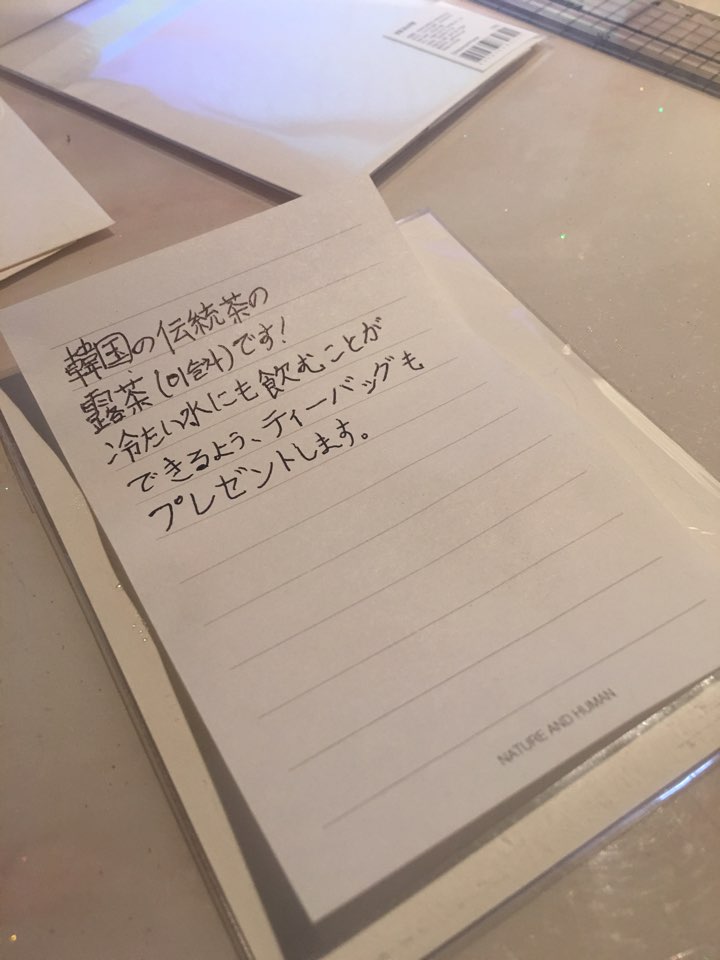 韓国の伝統茶の
露茶(이슬차)です!
冷たい水にも飲むことが
できるよう、ティーバッグも
プレゼントします。
NATURE AND HUMAN